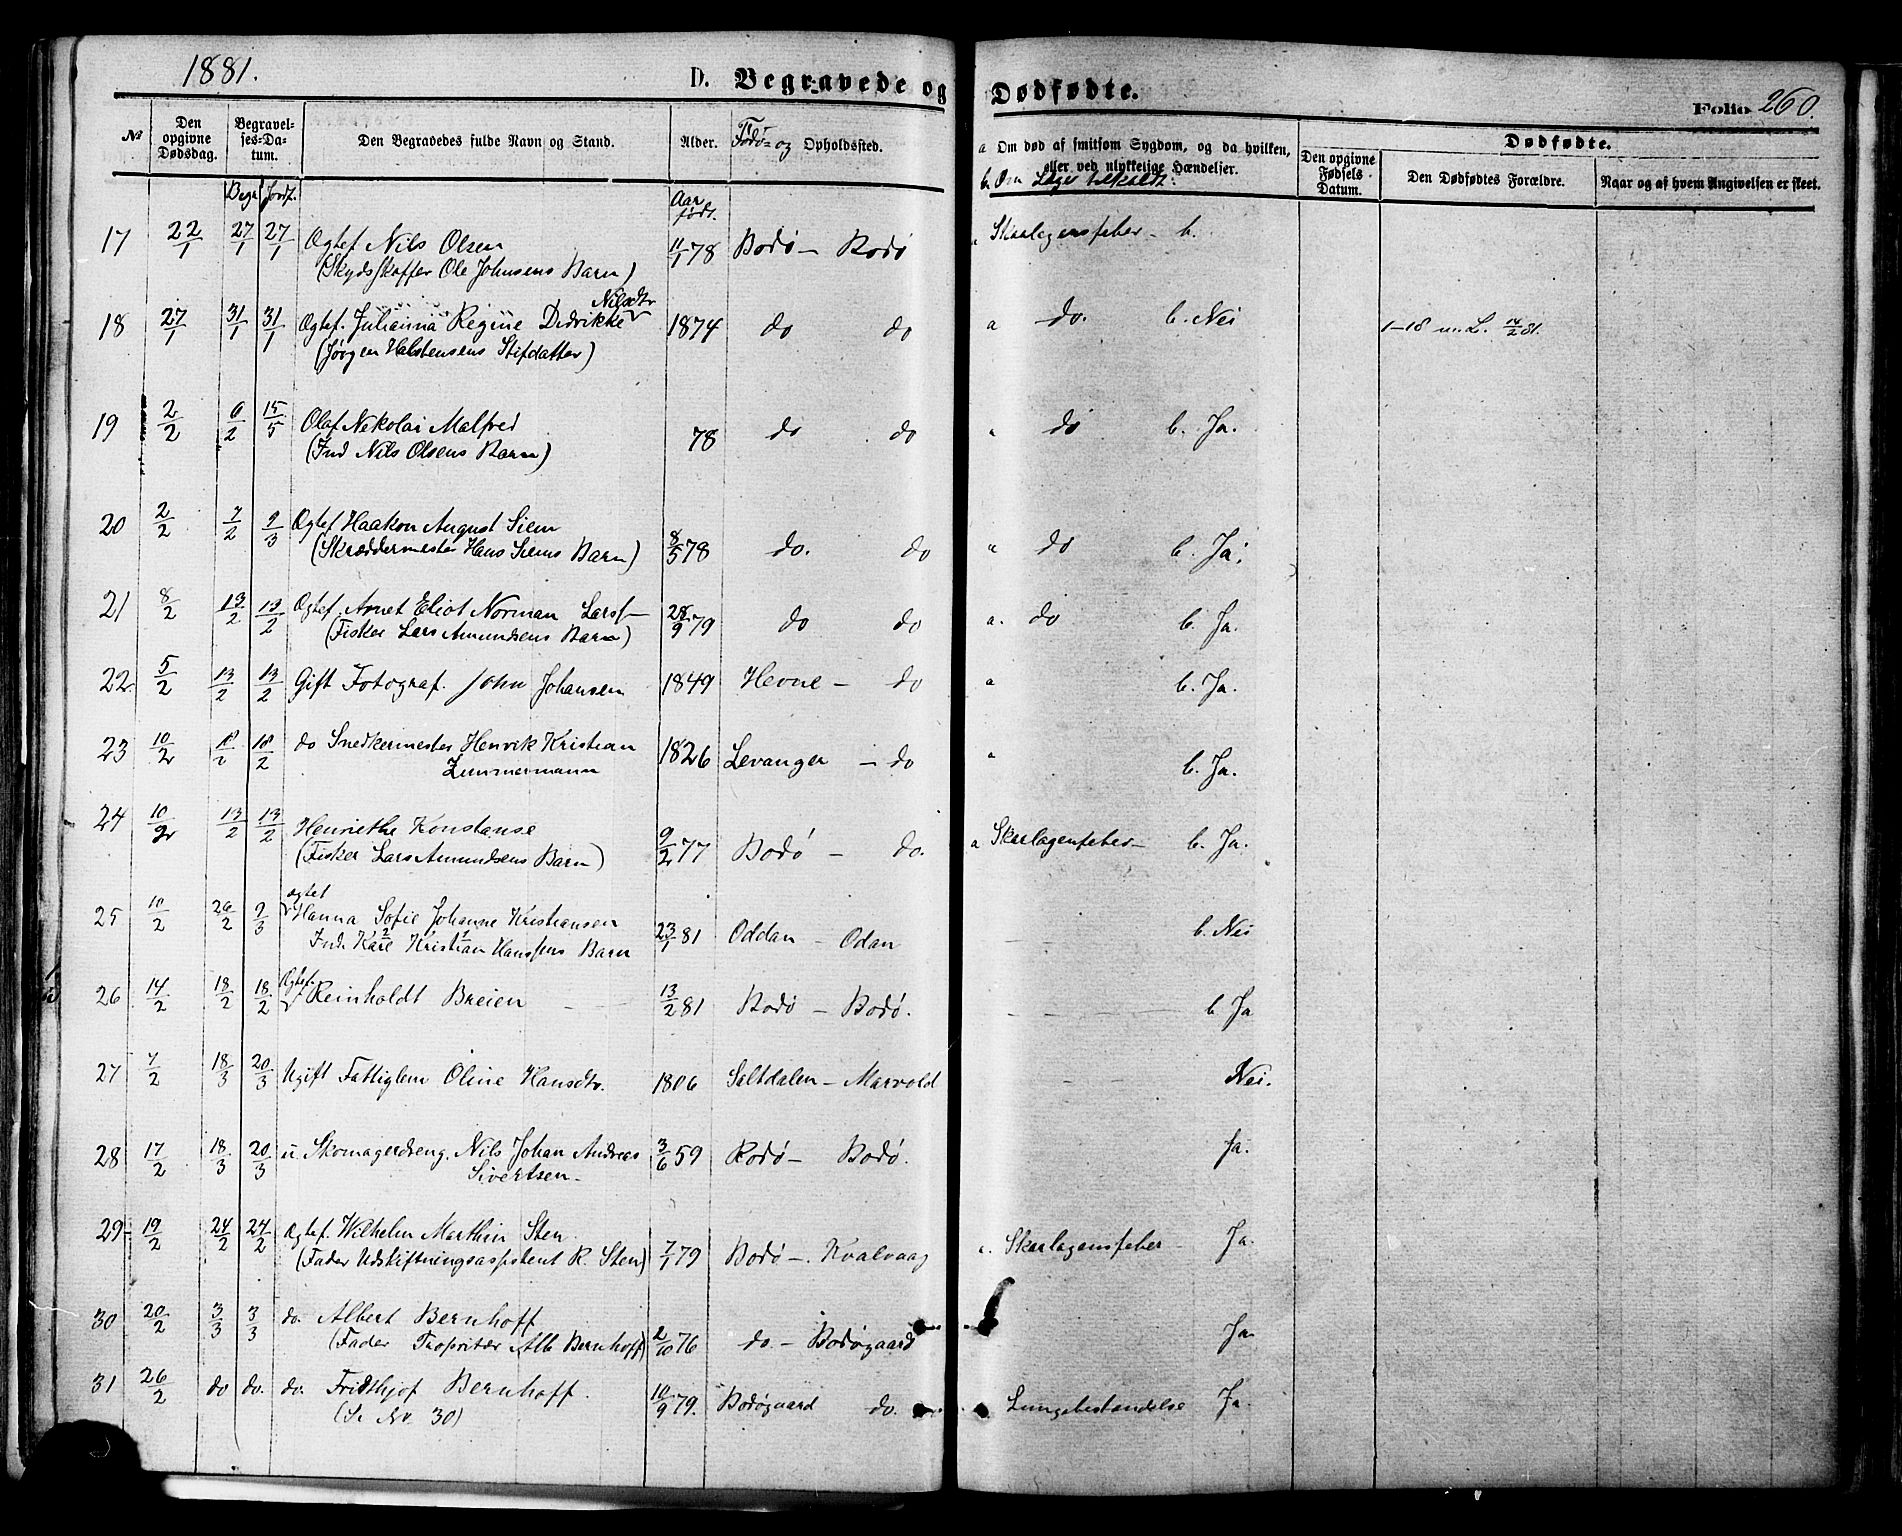 1881.
D. Begravede og Dødfødte.
Folio 260.
No
Den opgivne Dødsdag.
Begravelses-Datum.
Den Begravedes fulde Navn og Stand.
Alder.
Føde- og Opholdssted.
a Om død af smitsom Sygdom, og da hvilken, eller ved ulykkelige Hændelser.
b. Om Læge tilkaldt:
Dødfødte.
Den opgivne Fødsels Datum.
Den Dødfødtes Forældre.
Naar og af hvem Angivelsen er skeet.
Begr. Jordf.
Aar født.
17 22/1 27/1 27/1 Ægtef Nils Olsen 11/1 78 Bodø - Bodø a Skarlagensfeber - b.
(Skydsskaffer Ole Johnsens Barn)
18 27/1 31/1 31/1 Ægtef. Julianna Regine Didrikke Nilsdtr 1874 do do a do. b. Nei 1-18 m. L. 14/2 81.
(Jørgen Halstensens Stifdatter)
19 2/2 6/2 15/5 Olaf Nekolai Malfred 78 do do a do b. Ja.
(Ind Nils Olsens Barn)
20 2/2 7/2 9/3 Ægtef Haakon August Siem 8/5 78 do. do a do b. Ja.
(Skræddermester Hans Siems Barn)
21 8/2 13/2 13/2 Ægtef. Arnet Eliot Norman Larss- 28/9 79 do do a. do b. Ja.
(Fisker Lars Amundsens Barn)
22 5/2 13/2 13/2 Gift Fotograf. John Johansen 1849 Hevne - do a b. Ja.
23 10/2 18/2 18/2 do Snedkermester Henrik Kristian Zimmermann 1826 Levanger - do a b. Ja.
24 10/2 13/2 13/2 Henriethe Konstanse 9/2 77 Bodø - do. a Skarlagenfeber - b. Ja.
(Fisker Lars Amundsens Barn)
25 10/2 26/2 9/3 Ægtef Hanna Sofie Johanne Kristiansen 23/1 81 Oddan - Odan b. Nei
Ind. Karl Kristian Hanssens Barn
26 14/2 18/2 18/2 Ægtef. Reinholdt Breien 13/2 81 Bodø - Bodø. b Ja
27 7/2 18/3 20/3 Ugift Fattiglem Oline Hansdtr. 1806 Saltdalen - Marvold Nei.
28 17/2 18/3 20/3 u. Skomagerdreng. Nils Johan Andreas Sivertsen - 3/6 59 Bodø - Bodø. Ja.
29 19/2 24/2 24/2 Ægtef. Wilhelm Marthin Sten 7/1 79 Bodø -. Kvalvaag a. Skarlagensfeber - Ja.
(Fader Udskiftningsassistent R. Sten)
30 20/2 3/3 3/3 do. Albert Bernhoff 2/10 76 do. - Bodøgaard Ja
(Fader Proprietær Alb Bernhoff)
31 26/2 do do. do. Fridthjof Bernhoff. 10/9 79. Bodøgaard do. Lungebetændelse Ja.
(Se No. 30)